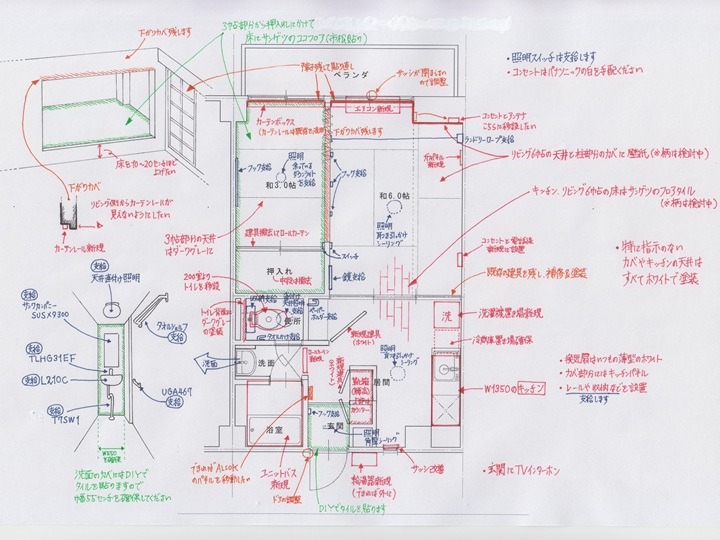 下がりカベ残します
3帖部分から押入れにかけて
床にサンゲツのココフロア(市松貼り)
障子残して貼り直し
ベランダ
サッシが閉まらないので調整
・照明スイッチは支給します
・コンセントはパナソニックの白を手配ください
エアコン新規
カーテンボックス
下がりカベ残します
コンセントとアンテナ
こちらに移設したい
ランドリーロープ支給
リビング6帖の天井と柱部分のカベに壁紙(※柄は検討中)
床をカ〜20センチほど
上げたい
フック支給
照明
和3.0帖
フック支給
和6.0帖
照明
引っかけ
シーリング
キッチン、リビング6帖の床はサンゲツのフロアタイル
(※柄は検討中)
下がりカベ
リビング側からカーテンレールが
見えないようにしたい
カーテンレール新規
3帖部分の天井
はダークグレーに
建具撤去してロールカーテン
スイッチ
押入れ
中段は撤去
鏡支給
コンセントと電話線
既存の建具を残し、補修&塗装
・特に指示のない
カベやキッチンの天井は
すべてホワイトで塗装
支給
天井直付け照明
200室より
トイレを移設
便所
ペーパーホルダー支給
タオルかけ支給
トイレ背面は
ダークグレー
の塗装
支給
サンワカンパニー
SUSX9300
タオルシェルフ
支給
新規建具
(ホワイト)
洗
洗濯機置き場新規
冷蔵庫置き場確保
支給
TLHG31EF
支給
L210C
支給
T7SW1
UGA467
支給
洗面
洗面
照明
引っかけ
シーリング
居間
・換気扇はいつもの薄型のホワイト
・カベ部分にはキッチンパネル
・レールや収納などを設置
支給します
W1350のキッチン
フック支給
玄関
浴室
照明
角型シーリング
W550
を確保
洗面のカベにはDIYで
タイルを貼りますので
幅55センチを確保してください
できればALSOK
のパネルを移動したい
ユニットバス
新規
ドアの調整
DIYでタイルを貼ります
給湯器新規
(できれば外に)
サッシ改善
・玄関にTVインターホン